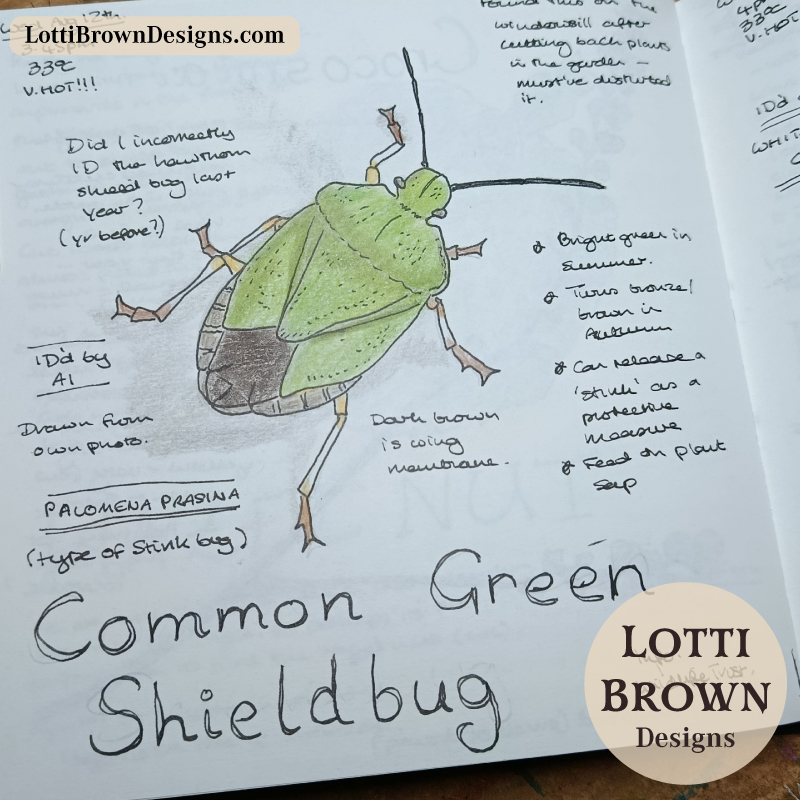 LottiBrownDesigns.com
Aug 12th
3.45pm
33°C
V. HOT!!!
found this on the
windowsill after
cutting back plants
in the garden –
must've disturbed
it.
Did I incorrectly
ID the hawthorn
shield bug last
year?
(yr before?)
ID'd by
AI
Drawn from
own photo.
PALOMENA PRASINA
(type of Stink bug)
Dark brown
is wing
membrane.
Bright green in
Summer.
Turns bronze/
brown in
Autumn
Can release a
'stink' as a
protective
measure
Feed on plant
sap
Common Green
Shieldbug
4pm
33°C
V. HOT
ID'd
WHIT
LOTTI
BROWN
Designs